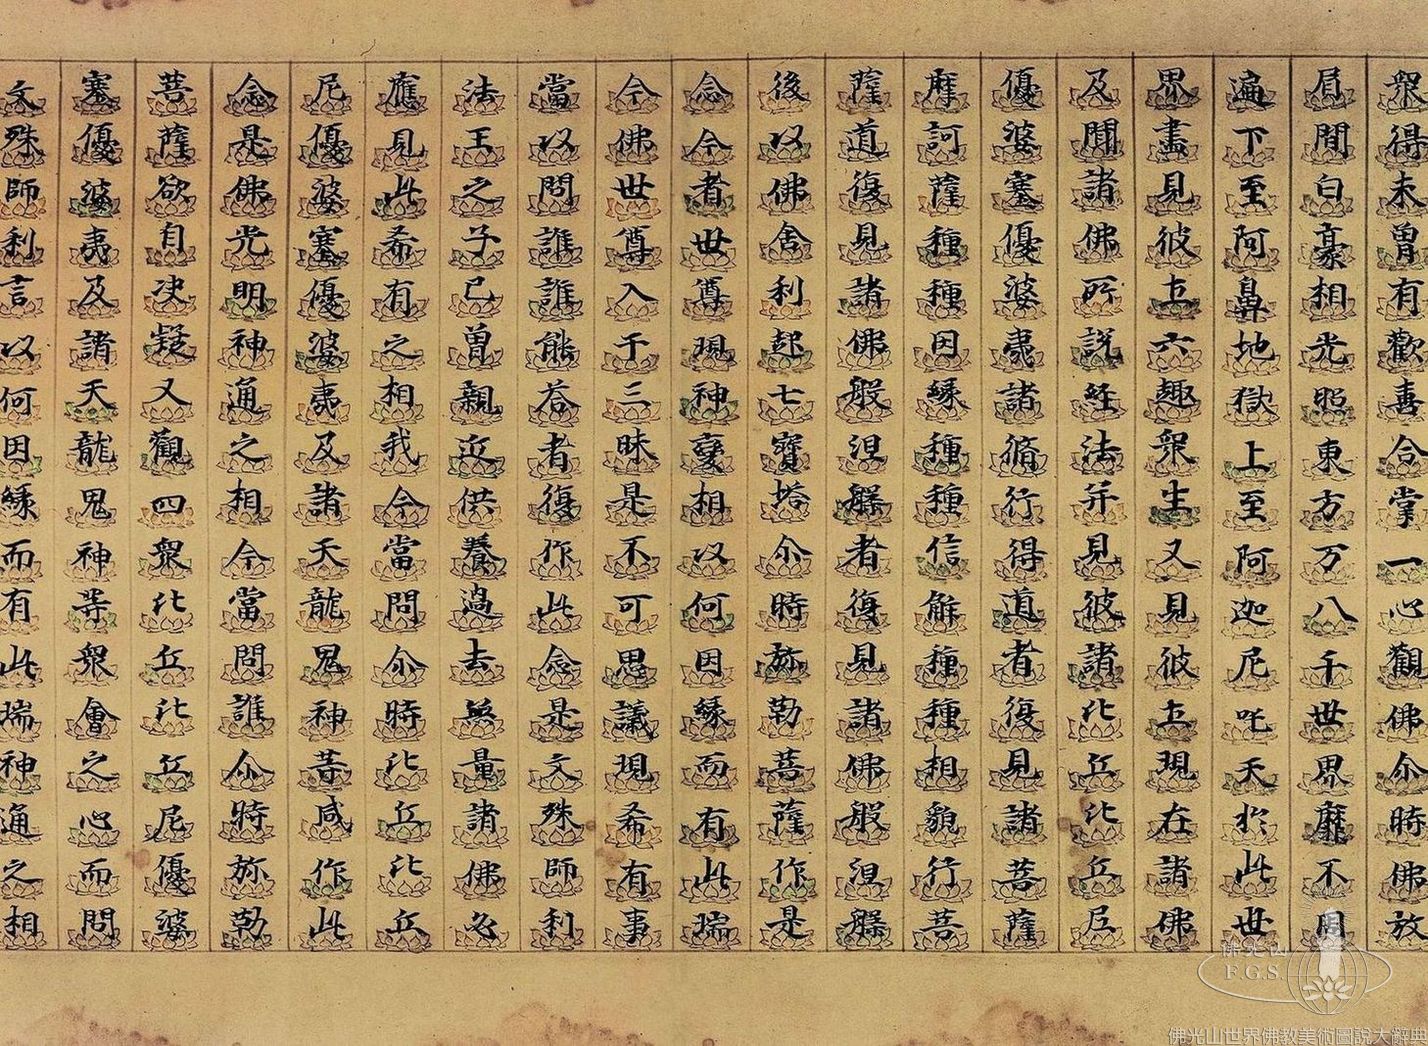 衆得未曾有歡喜合掌一心觀佛尒時佛放
眉間白豪相光照東方万八千世界靡不周
遍下至阿鼻地獄上至阿迦尼吒天於此世
界盡見彼土六趣衆生又見彼土現在諸佛
及聞諸佛所說經法并見彼諸比丘比丘尼
優婆塞優婆夷諸脩行得道者復見諸菩薩
摩訶薩種種因緣種種信解種種相貌行菩
薩道復見諸佛般涅槃者復見諸佛般涅槃
後以佛舍利起七寶塔尒時弥勒菩薩作是
念今者世尊現神變相以何因緣而有此瑞
今佛世尊入于三昧是不可思議現希有事
當以問誰誰能荅者復作此念是文殊師利
法王之子已曾親近供養過去無量諸佛必
應見此希有之相我今當問尒時比丘比丘
尼優婆塞優婆夷及諸天龍鬼神等咸作此
念是佛光明神通之相今當問誰尒時弥勒
菩薩欲自决疑又觀四衆比丘比丘尼優婆
塞優婆夷及諸天龍鬼神等衆會之心而問
文殊師利言以何因緣而有此瑞神通之相
佛光山
F.G.S.
佛光山世界佛教美術圖說大辭典